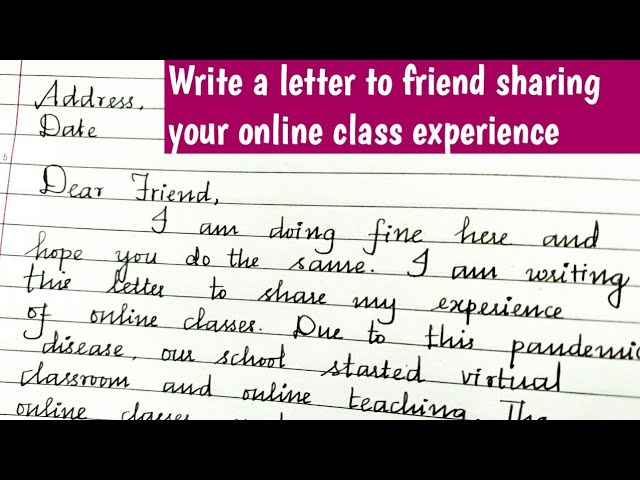 Write a letter to friend sharing
your online class experience
Address,
Date
Dear Friend,
I am doing fine here and
hope you do the same. I am writing
this letter to share my experience
of online classes. Due to this pandemic
disease, our school started virtual
classroom and online teaching. The
online classes